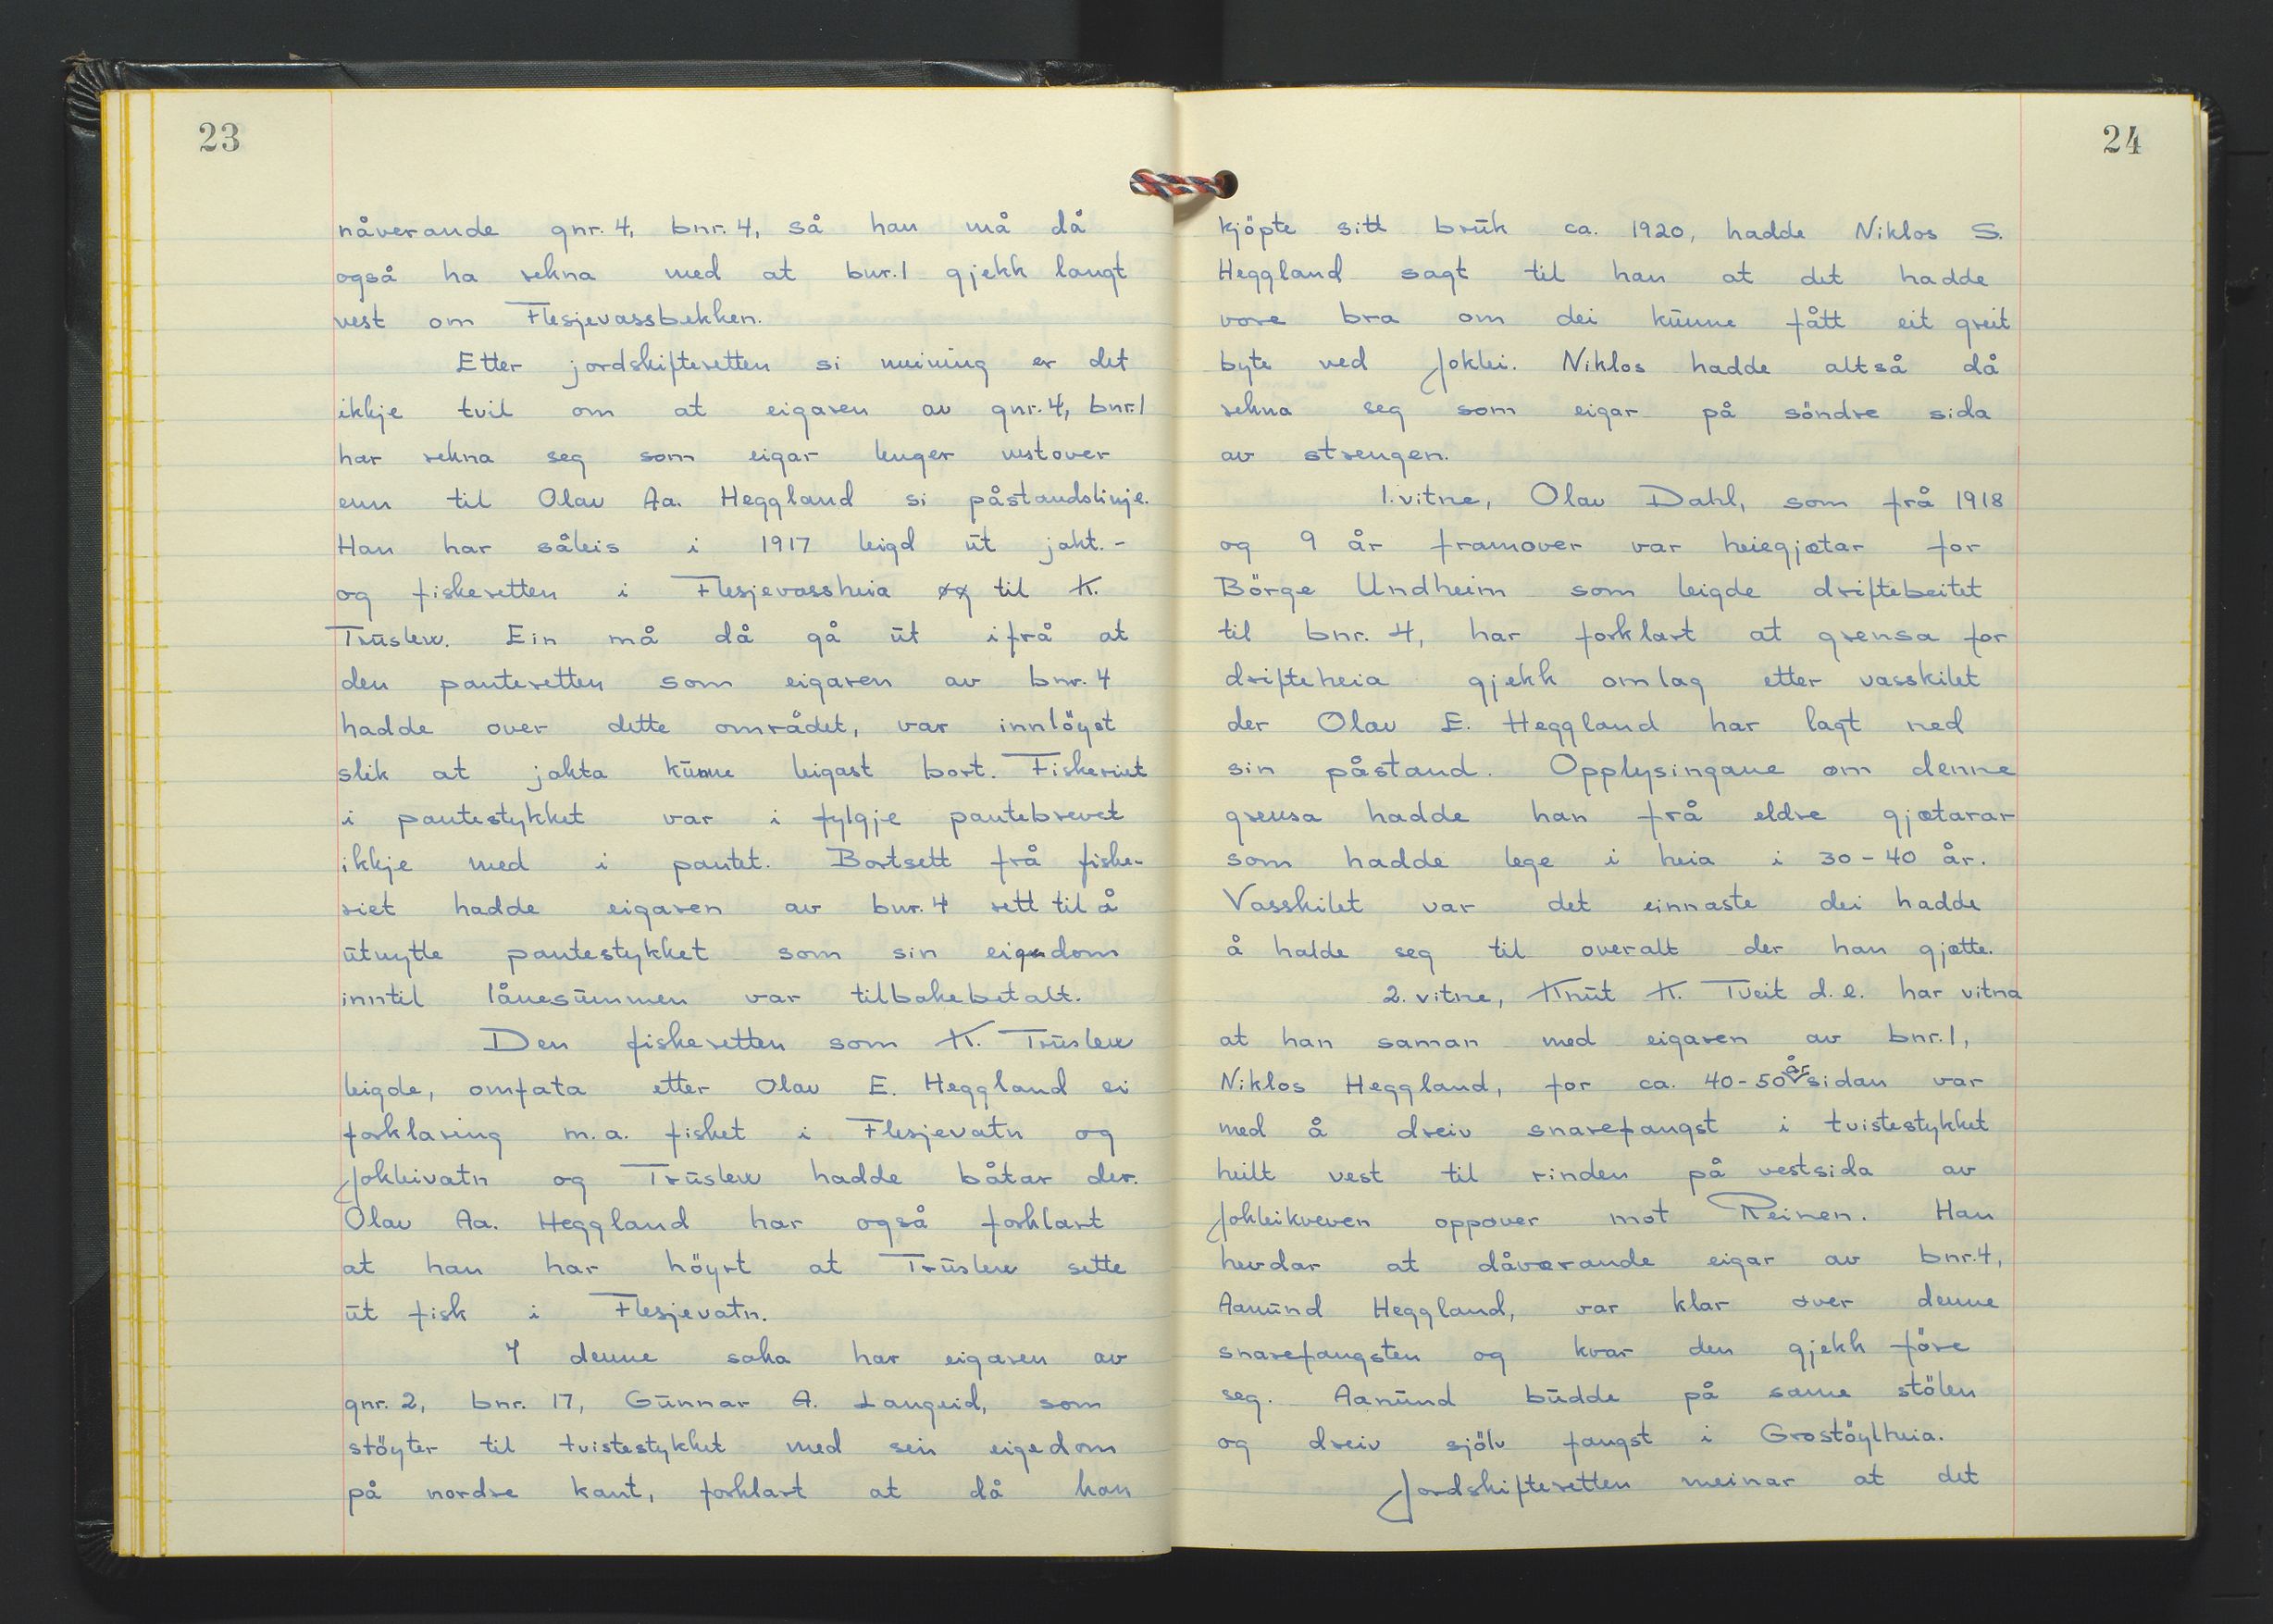 23
nåverande gnr. 4, bnr. 4, så han må då
også ha rekna med at bnr. 1 gjekk langt
vest om Flesjevassbekken.
Etter jordskifteretten si meining er det
ikkje tvil om at eigaren av gnr. 4, bnr. 1
har rekna seg som eigar lenger vestover
enn til Olav Aa. Heggland si påstandslinje.
Han har såleis i 1917 leigd ut jakt.-
og fiskeretten i Flesjevassheia og til K.
Truslew. Ein må då gå ut ifrå at
den panteretten som eigaren av bnr. 4
hadde over dette området, var innlöyst
slik at jakta kunne leigast bort. Fiskeriet
i pantestykket var i fylgje pantebrevet
ikkje med i pantet. Bortsett frå fiske-
riet hadde eigaren av bnr. 4 rett til å
utnytte pantestykket som sin eigendom
inntil lånesummen var tilbakebetalt.
Den fiskeretten som K. Truslew
leigde, omfata etter Olav E. Heggland si
forklaring m.a. fisket i Flesjevatn og
Jokleivatn og Truslew hadde båtar der.
Olav Aa. Heggland har også forklart
at han har höyrt at Truslew sette
ut fisk i Flesjevatn.
I denne saka har eigaren av
gnr. 2, bnr. 17, Gunnar A. Langeid, som
stöyter til tvistestykket med sin eigedom
på nordre kant, forklart at då han
24
kjöpte sitt bruk ca. 1920, hadde Niklos S.
Heggland sagt til han at det hadde
vore bra om dei kunne fått eit greit
byte ved Joklei. Niklos hadde altså då
rekna seg som eigar på söndre sida
av strengen.
1. vitne, Olav Dahl, som frå 1918
og 9 år framover var heiegjætar for
Börge Undheim som leigde driftebeitet
til bnr. 4, har forklart at grensa for
drifteheia gjekk omlag etter vasskilet
der Olav E. Heggland har lagt ned
sin påstand. Opplysingane om denne
grensa hadde han frå eldre gjætarar
som hadde lege i heia i 30-40 år.
Vasskilet var det einnaste dei hadde
å halde seg til overalt der han gjætte.
2. vitne, Knut K. Tveit d.e. har vitna
at han saman med eigaren av bnr. 1,
Niklos Heggland, for ca. 40-50 år sidan var
med å dreiv snarefangst i tvistestykket
heilt vest til rinden på vestsida av
Jokleikveven oppover mot Reinen. Han
hevdar at dåværande eigar av bnr. 4,
Aanund Heggland, var klar over denne
snarefangsten og kvar den gjekk före
seg. Aanund budde på same stölen
og dreiv sjölv fangst i Grostöylheia.
Jordskifteretten meinar at det